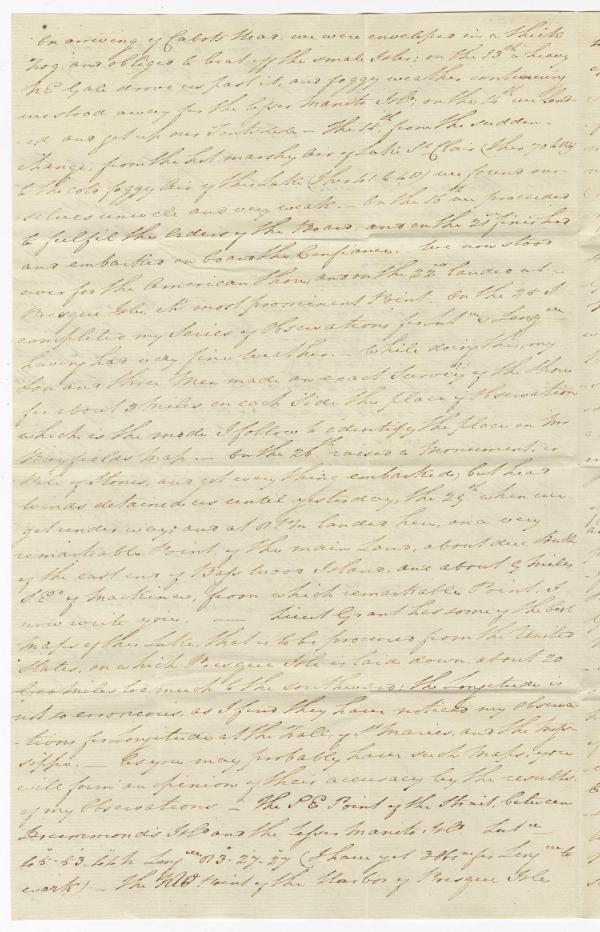 On arriving of Cabots Head, we were enveloped in a thick
Fog, and obliged to beat off the small Isles; on the 13th a heavy
NE Gale drove us past it, and foggy weather continuing
we stood away for the Lesser Manito Isld, on the 14th we Land-
ed and got up our Tents &c — The 15th, from the sudden
change, from the hot marshy Air of Lake St Clair (Ther 70 to 84)
to the cold foggy Air of this Lake (Ther 41 to 48) we found our-
selves unwell and very weak. — On the 16th we proceeded
to fulfil the Orders of the Board, and on the 21st finished
and embarked on board the Confiance. We now stood
over for the American Shore, and on the 22nd landed at
Presque Isle, it's most prominent Point. On the 25 I
completed my Series of Observations for Latde & Longde
having had very fine weather. — While doing this, my
Son and three Men made an exact Survey of the Shore
for about 3 Miles on each Side the place of Observation
which is the mode I follow to identify the place on Mr
Bayfields Map. — On the 26th raised a Monument, or
Pile of Stones, and got every thing embarked; but head
winds detained us until yesterday, the 29th when we
got under way; and at 8 Pm landed here, on a very
remarkable Point, of the main Land, about due South
of the east end of Bass wood Island, and about 9 Miles
SEd of Mackinac, from which remarkable Point, I
now write you. — Lieut Grant has some of the best
Maps of this Lake, that is to be procured from the United
States, on which Presque Isle is laid down about 20
Geo Miles too much to the southward; the Longitude is
not so erroneous, as I find they have noticed my Observa-
-tions for Longitude at the Falls, of St Maries, and the Mis-
sippie. — As you may probably have such Maps, you
will form an opinion of their accuracy by the results
of my Observations — The SE Point of the Strait, between
Drummond's Isld and the Lesser Manito Isld Latde
45°.53'. Longde 83°.27'.27 (I have yet for Longde to
work) — The NW Point of the Harbor of Presque Isle